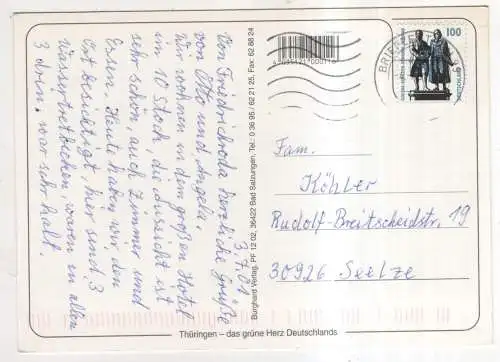 3.7.01
Von Friedrichroda herzliche Grüße
von Otto und Angela.
Wir wohnen in dem großen Hotel
im 10 Stock, die Aussicht ist
sehr schön, auch Zimmer und
Essen. Heute haben wir den
Ort besichtigt, hier sind 3
Wassertretbecken, waren in allen
3 drin, war sehr kalt.
Burghard Verlag, PF 12 02, 36422 Bad Salzungen, Tel.: 0 36 95 / 62 21 25, Fax: 62 88 24
100
DEUTSCHLAND
Fam.
Köhler
Rudolf-Breitscheidstr. 19
30926 Seelze
Thüringen – das grüne Herz Deutschlands